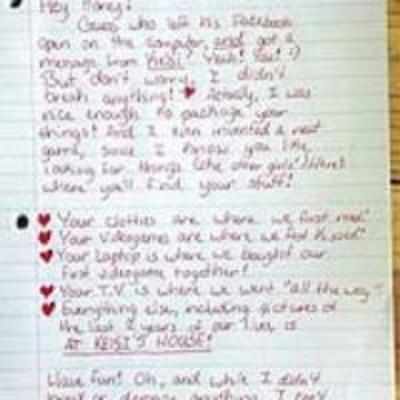 Hey Honey!
Guess who left his Facebook
open on the computer, and got a
message from KEISI? Yeah! You! :)
But don't worry, I didn't
break anything! ♥ Actually, I was
nice enough to package your
things! And I even invented a neat
game, since I know you like
looking for things (like other girls!) Here's
where you'll find your stuff!
♥ Your clothes are where we first met!
♥ Your videogames are where we first kissed!
♥ Your laptop is where we bought our
first videogame together!
♥ Your T.V. is where we went "all the way".
♥ Everything else, including pictures of
the last 2 years of our lives is
AT KEISI'S HOUSE!
Have fun! Oh, and while I didn't
or damage anything, I